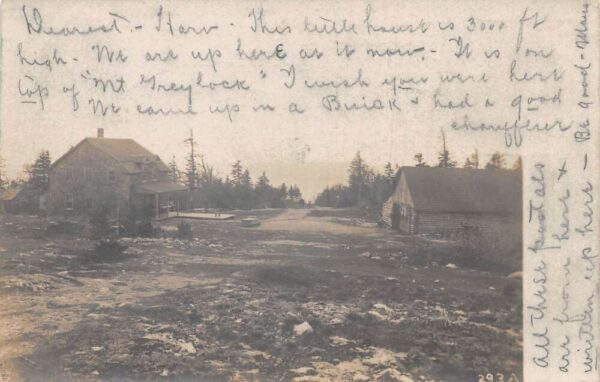 Dearest - Harv - This little house is 3000 ft
high - We are up here at it now. - It is on
top of "Mt Greylock" I wish you were here
We came up in a Buick & had a good
chaufferer
All three postals
are from here &
written up here -
Be good -
293A